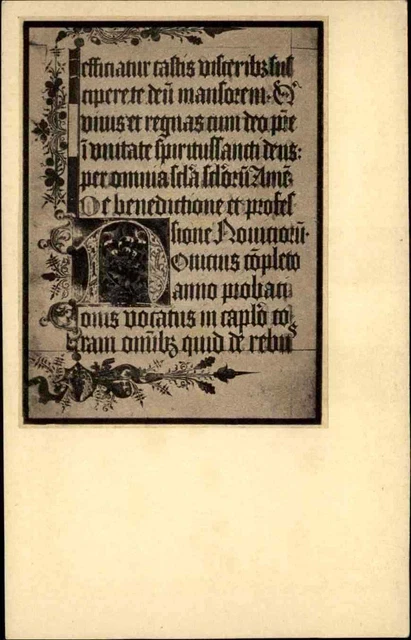 efficiatur castis visceribz sus
cipere te deū mansorem. Q
vivis et regnas cum deo pr̄e
ī vnitate spiritussancti deus:
per omnia sc̄la sc̄lorū Amē
De benedictione et profes
sione Noviciorū.
Novicius cōpleto
anno probaci
onis vocatus in capl̄o co
ram omībz quid de rebus